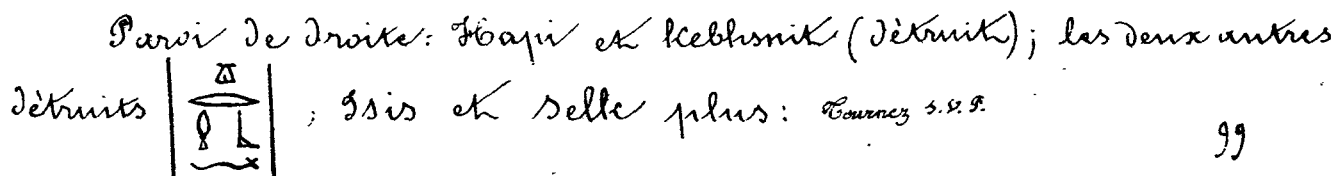 Paroi de droite: Hapi et Kebhsnik (détruit); les deux autres
détruits ; Isis et Selk plus: Tournez s.v.P.
99